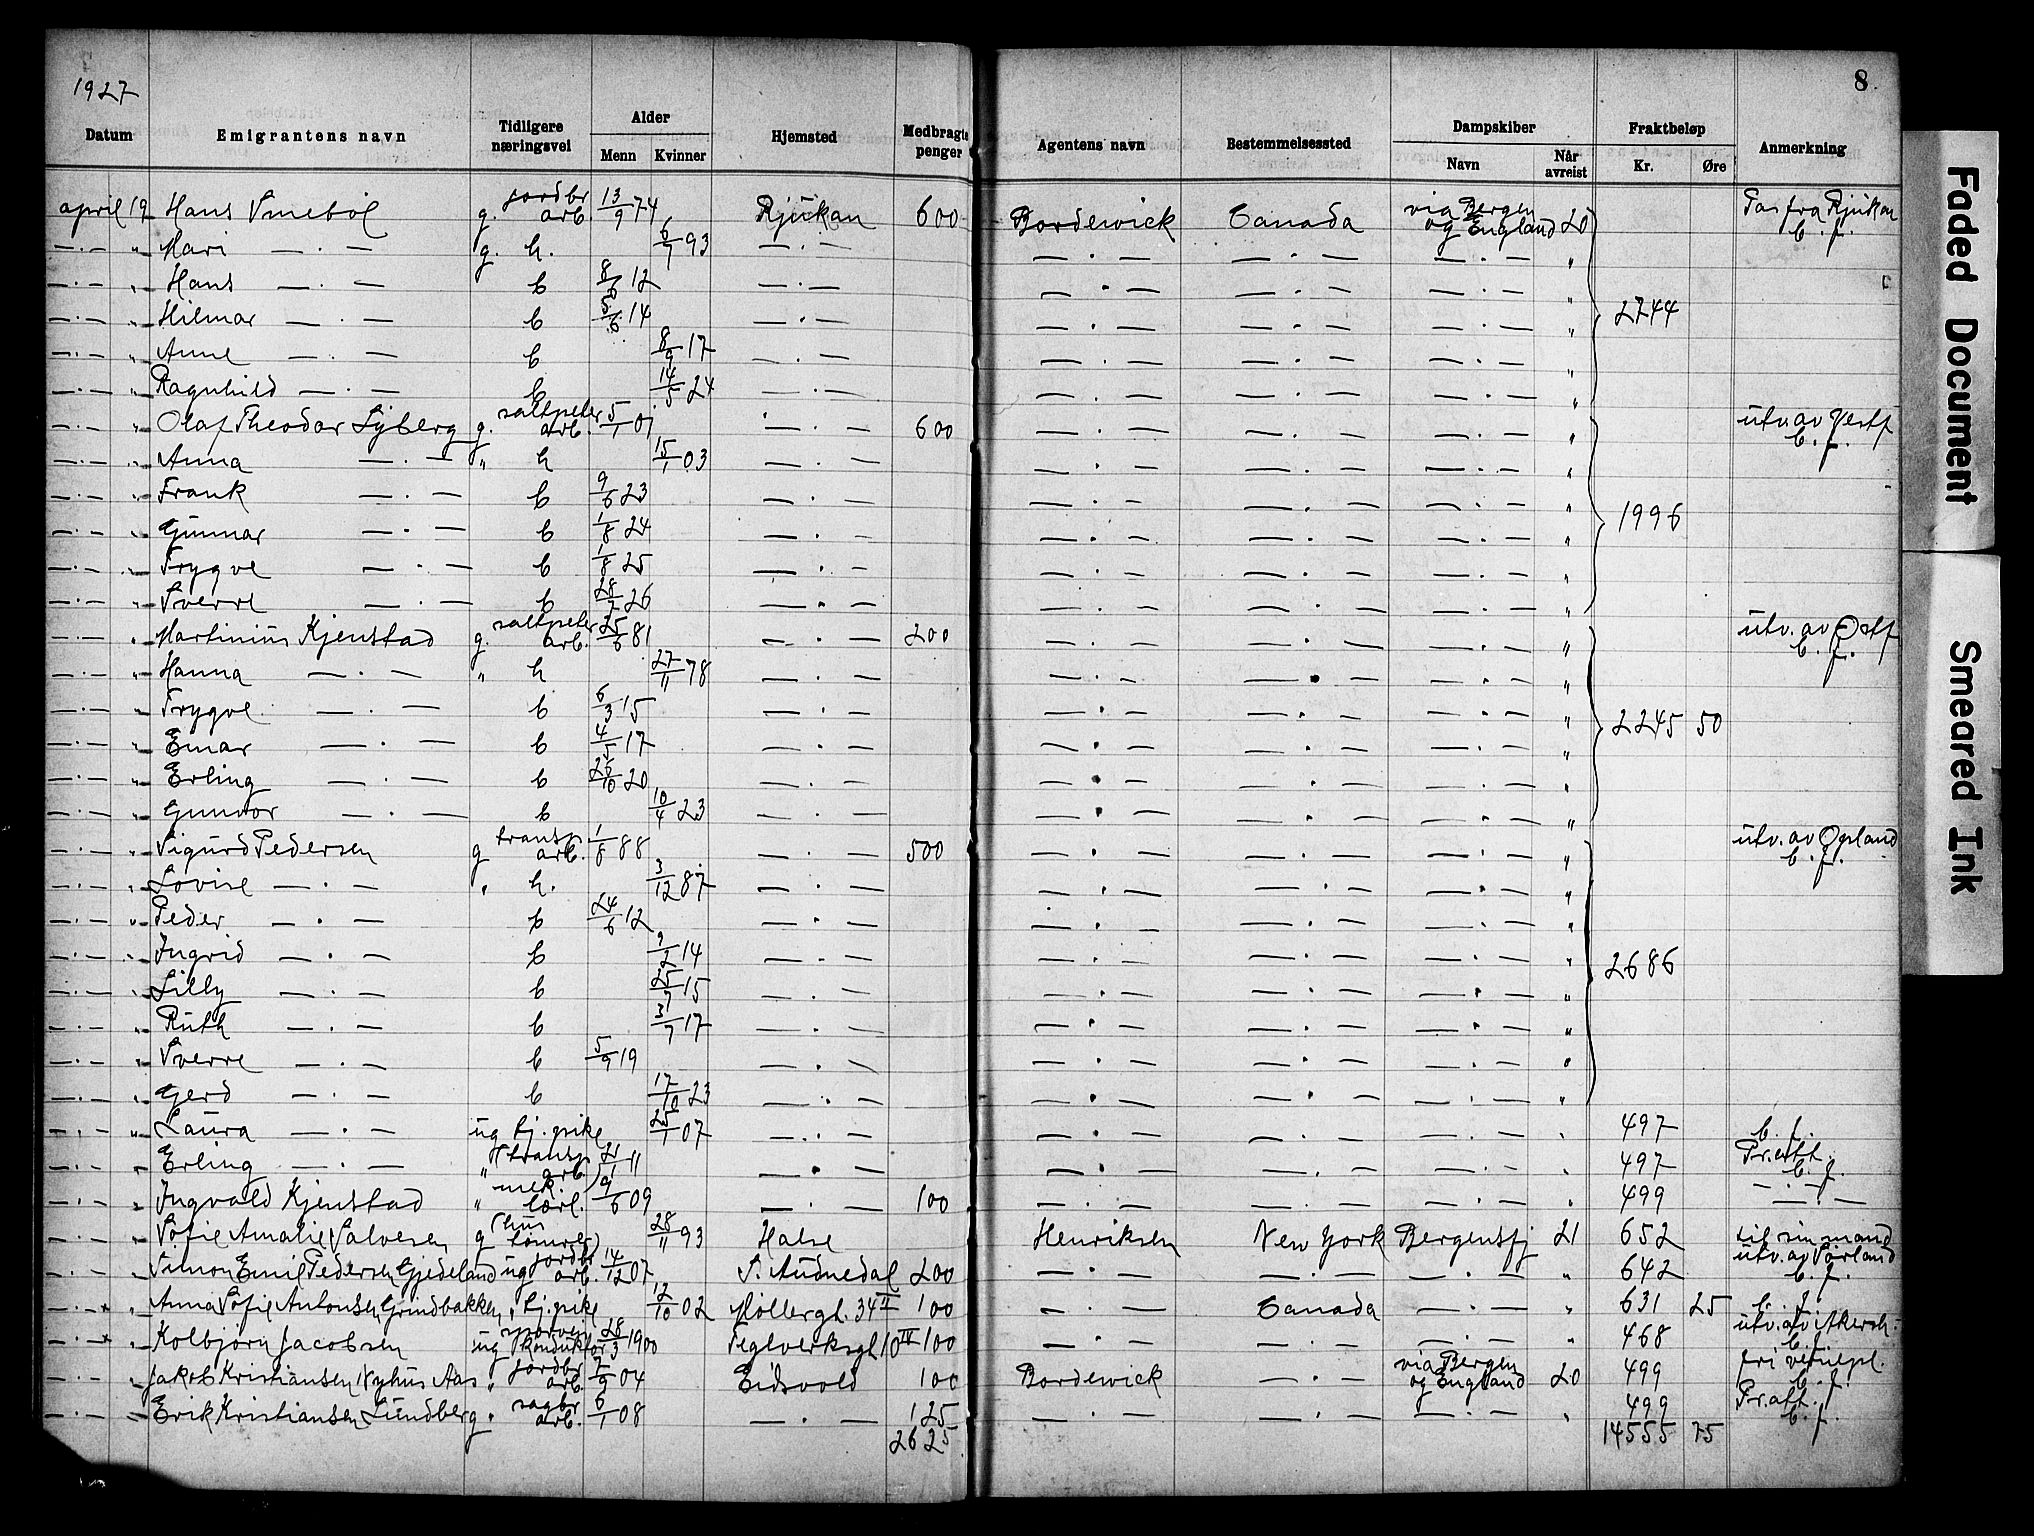 8
1927
Datum Emigrantens navn Tidligere næringsvei Alder Menn Kvinner Hjemsted Medbragte penger Agentens navn Bestemmelsessted Dampskiber Navn Når avreist Fraktbeløp Kr. Øre Anmerkning
april 19 Hans g. jordbr. arb. 13/9 74 Rjukan 600 Bordewick Canada via Bergen og England 20 Pas fra Rjukan b. f.
— · — " Mari — · — g. h. 6/7 93 — · — — · — — · — — · — "
— · — " Hans — · — b 12 — · — — · — — · — — · — "
— · — " Hilmar — · — b 5/6 14 — · — — · — — · — — · — " 2744
— · — " Anne — · — b 8/9 17 — · — — · — — · — — · — "
— · — " Ragnhild — · — b 14/5 24 — · — — · — — · — — · — "
— · — " Olaf Theodor Lyberg g. saltpeter arb. 5/1 01 — · — 600 — · — — · — — · — " utv. av Vestf b. f.
— · — " Anna — · — " h 15/1 03 — · — — · — — · — — · — "
— · — " Frank — · — b 9/6 23 — · — — · — — · — — · — "
— · — " Gunnar — · — b 1/8 24 — · — — · — — · — — · — " 1996
— · — " Trygve — · — b 1/8 25 — · — — · — — · — — · — "
— · — " Sverre — · — b 28/7 26 — · — — · — — · — — · — "
— · — " Martinius Kjenstad g. saltpeter arb. 25/6 81 — · — 200 — · — — · — — · — " utv. av Østf b. f.
— · — " Hanna — · — " h 27/11 78 — · — — · — — · — — · — "
— · — " Trygve — · — b 6/3 15 — · — — · — — · — — · — " 2245 50
— · — " Einar — · — b 4/5 17 — · — — · — — · — — · — "
— · — " Erling — · — b 26/10 20 — · — — · — — · — — · — "
— · — " Gunvor — · — b 10/4 23 — · — — · — — · — — · — "
— · — " Sigurd Pedersen g transp. arb. 1/8 88 — · — 500 — · — — · — — · — " utv. av Opland b. f.
— · — " Lovise — · — " h. 3/12 87 — · — — · — — · — — · — "
— · — " Peder — · — b 24/6 12 — · — — · — — · — — · — "
— · — " Ingrid — · — b 9/2 14 — · — — · — — · — — · — " 2686
— · — " Lilly — · — b 25/7 15 — · — — · — — · — — · — "
— · — " Ruth — · — b 31/7 17 — · — — · — — · — — · — "
— · — " Sverre — · — b 5/9 19 — · — — · — — · — — · — "
— · — " Gerd — · — b 17/10 23 — · — — · — — · — — · — "
— · — " Laura — · — ug tj. pike 25/1 07 — · — — · — — · — — · — " 497 b. f.
— · — " Erling — · — " transp. arb. 11 — · — — · — — · — — · — " 497 Pr.att. b. f.
— · — " Ingvald Kjenstad " mek. lærl. 9/6 09 — · — 100 — · — — · — — · — " 499 — · —
— · — " Sofie Amalie Salvesen g (hus tømrer) 28/11 93 Halse Henriksen New York Bergensfj 21 652 til sin mand
— · — " Simon Emil Pedersen Gjedeland ug jordbr. arb. 14/12 07 S. Audnedal 200 — · — — · — — · — " 642 utv. av Sørland b. f.
— · — × " Anna Sofie Antonsen Grindbakken " tj. pike 12/10 02 Møllergt. 34 II 100 — · — Canada — · — " 631 25 b. f.
— · — × " Kolbjørn Jacobsen ug sporvei konduktør 28/3 1900 Teglverksgt 10 IV 100 — · — — · — — · — " 468 utv. av Akersh. b. f.
— · — " Jakob Kristiansen Nyhus Aas " jordbr. arb. 04 Eidsvold 100 Bordewick — · — via Bergen og England 20 499 fri vernepl. b. f.
— · — " Erik Kristiansen Lundberg " sagbr. arb. 6/1 08 — · — 125 — · — — · — — · — " 499 Pr.att. b. f.
2625 14555 75
Faded Document
Smeared Ink